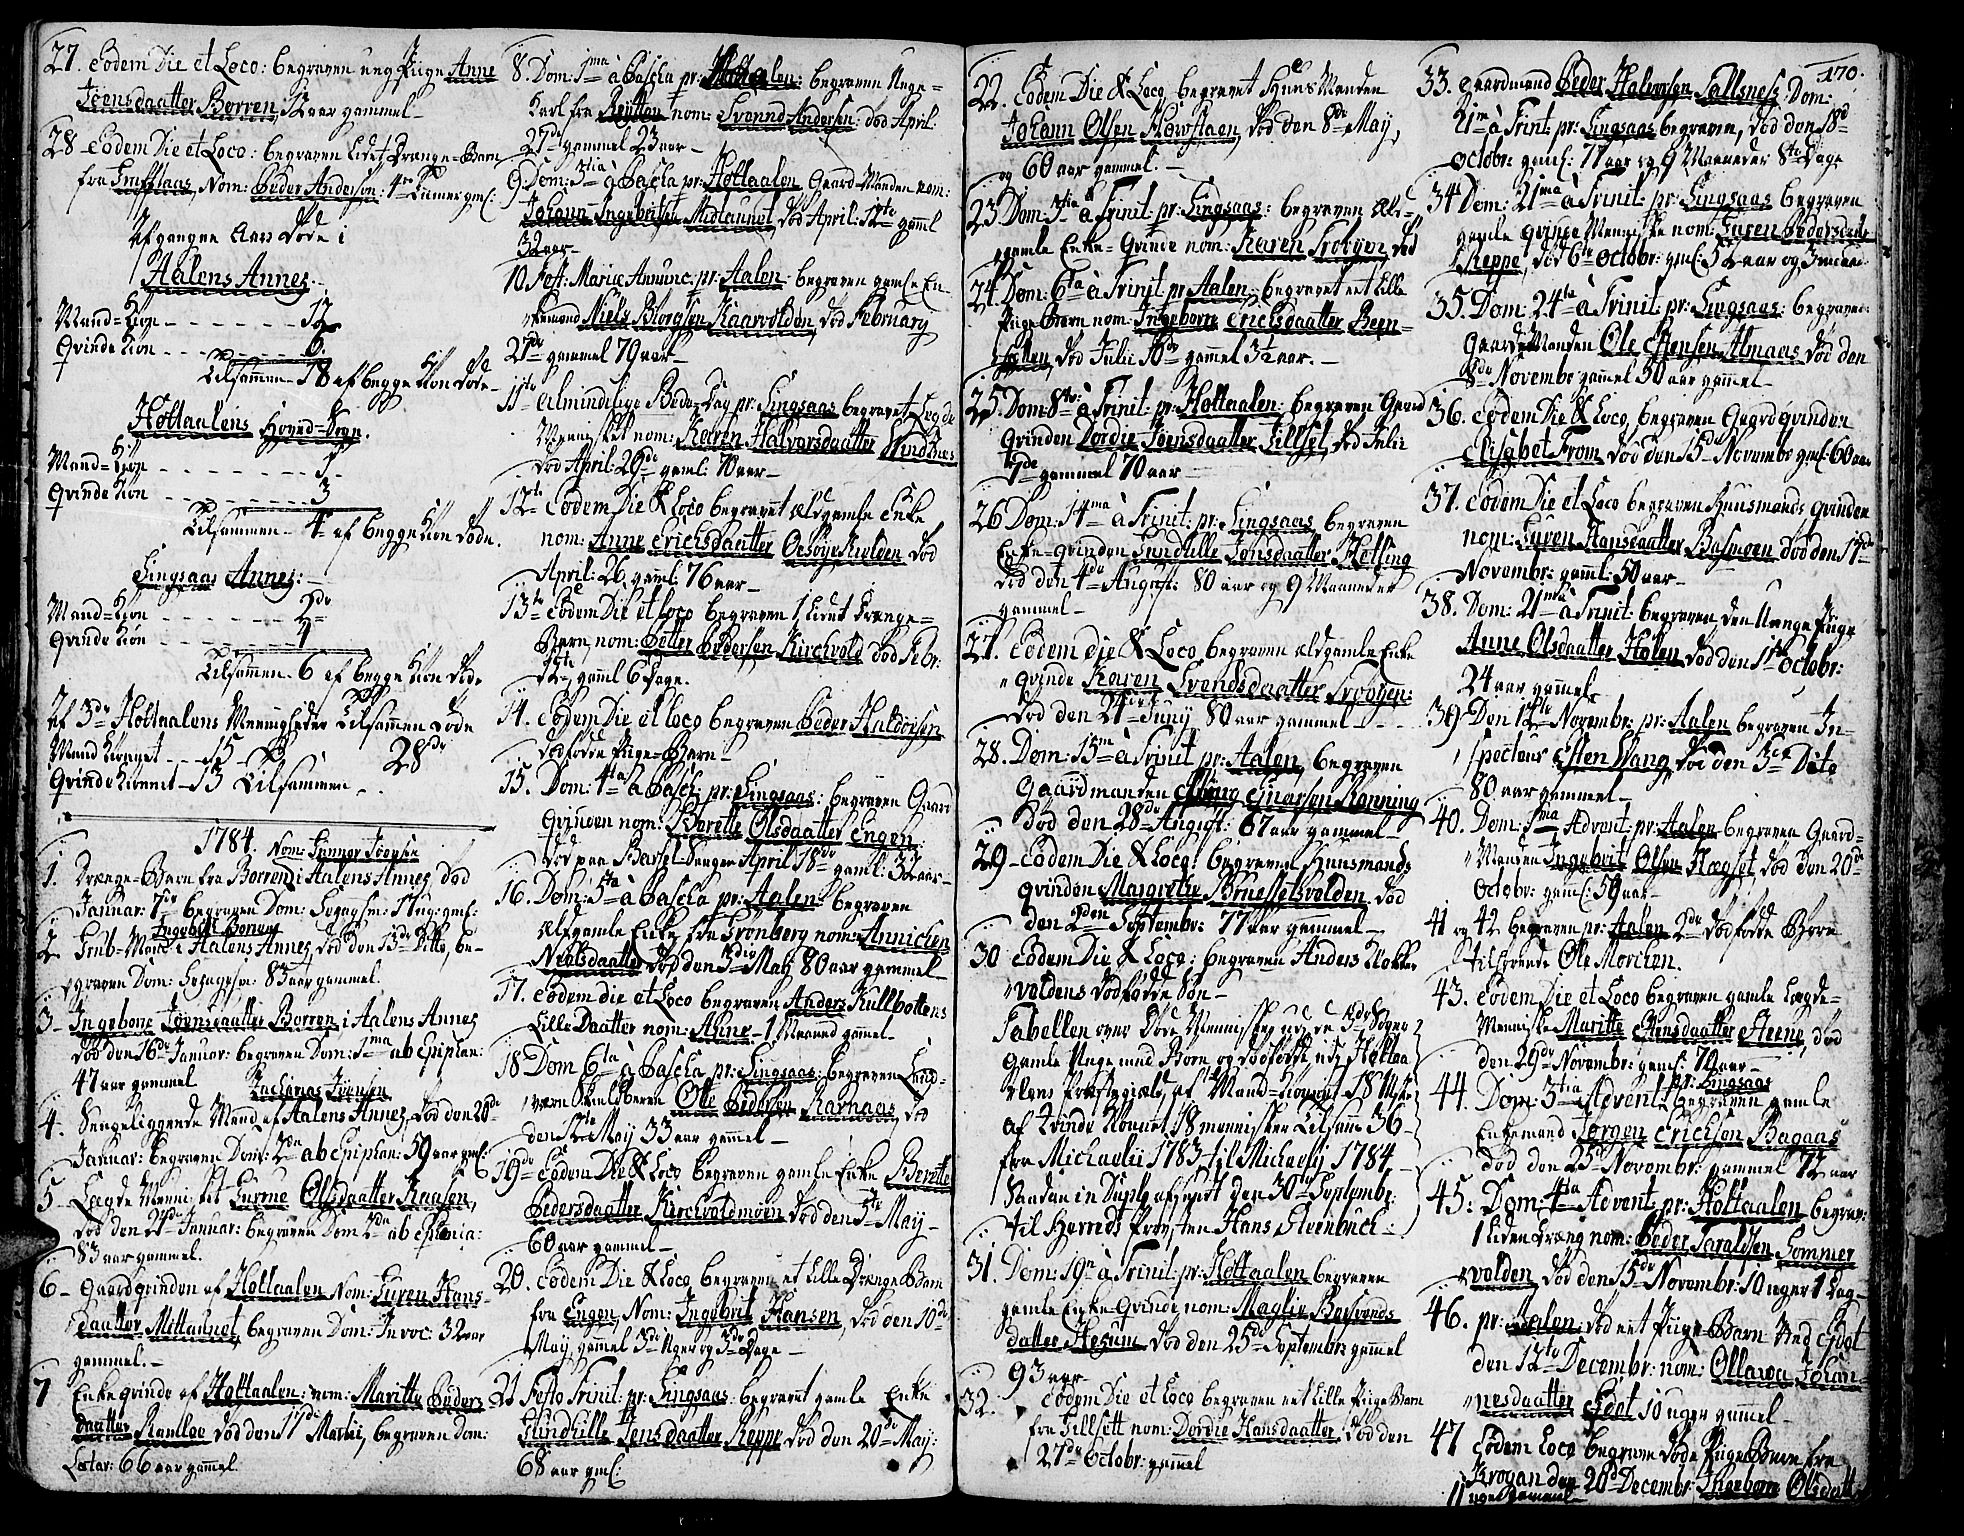 27. Eodem Die et Loco: begraven ung Pige Anne
Joensdaatter Borren, 12 aar gammel
28 Eodem Die et Loco: begraven lidet Drænge-Barn
fra Nom: Peder Andersen: gml:
Afgangne Aars Døde i
Aalens Annex
Mand-Kiøn - - - - - - - 12
Qvinde Kion - - - - - - - 6.
Tilsammen - 18 af begge Kion døde -
Høltaalens Hoved-Sogn.
Mand-Kion - - - - - - - 1
Qvinde Kion - - - - - - - 3
Tilsammen - 4 af begge Kion døde.
Singsaas Annex: -
Mand-Kion - - - - - - 2de
Qvinde Kion - - - - - - 4
Tilsammen - 6 af begge Kion døde
Af 3de Høltaalens Menigheder Tilsammen døde
Mand Kionnet - - - 15
Qvinde Kionnet - 13 Tilsammen - 28de
1784. Nom: Gunner Joensen
1. Drænge-Barn fra Borren i Aalens Annex, død
Januar: begraven Dom: gml:
Ingebrit Borren
2. Mand i Aalens Annex, død den 13de Ditto, be-
graven Dom: 83 aar gammel.
3 - Ingeborre Joensdaatter Borren i Aalens Annex
død den 16de Januar: begraven Dom: 1ma ab Epiphan:
47 aar gammel Zacharias Joensen
4. Sengeliggende Mand af Aalens Annex, død den 20de
Januar: begraven Dom: 2da ab Epiphan: 59 aar gml:
5 - Lægde Mennisket Olsdaatter Kaasen,
død den 24de Januar: begraven Dom: ab Ephania:
83 aar gammel.
6 - Gaardqvinden af Høltaalen Nom: Guren Hans-
daatter Mittaunet, begraven Dom: Invoc: 32 aar
gammel. -
7 Enkeqvinde af Høltaalen: nom: Maritte Peders
daatter Ramloe død den 17de Martii, begraven Dom:
Lætar: 66 aar gammel.
8. Dom: 1ma à Pascha pr: Høltaalen: begraven Unge-
Karl fra nom: Svennd Andersen: død April:
27de gammel 23 aar -
9. Dom: 3tia à Pascha pr: Høltaalen Gaard-Manden nom:
Johann Ingebritsen Midtaunet, død April: 12te gaml
32 aar -
10 Fest: Mariæ Annunc: pr: Aalen: begraven gamle En-
kemand Niels Biørgsen Kaarvolden, død February
27de gammel 79 aar -
11te Almindelige Bede-Dag pr: Singsaas begravet Lægde
Mennisket nom: Karen Halvorsdaatter
død April: 29de gaml: 70 aar -
12te Eodem Die & Loco begravet Ældgamle Enke
nom: Anne Erichsdaatter død
April: 26. gaml: 76 aar -
13te Eodem Die et Loco begraven 1 lidet Drænge-
Barn, nom: Petter Pedersen Kirchvold død Febr:
gaml 6 Dage.
14. Eodem Die et Loco begraven Peder Haldorsen
dødfødde Pige-Barn -
15. Dom: 4ta à Pasch: pr: Singsaas: begraven Gaard
Qvinden nom: Berette Olsdaatter Engen
død paa Barsel-Sengen April: 18de gaml: 32 aar -
16. Dom: 5ta à Pascha pr: Aalen: begraven
Ældgamle Enke fra Grønberg nom: Annichen
Nielsdaatter død den 3die May 80 aar gammel -
17. Eodem Die et Loco begraven Anders Kullbottens
Lille Daatter nom: Anne - 1 Maaned gammel -
18 Dom 6ta à Pascha pr: Singsaas: begraven Land-
værn Skieløberen Olle Pedersen Karnaas, død
den 17te May 33 aar gammel -
19de Eodem Die & Loco begraven gamle Enke Berette
Pedersdaatter Kirchvoldmoen død den 5te May -
60 aar gammel -
20. Eodem Die & Loco begraven et lille Drænge Barn
fra Engen, Nom: Ingebrit Hansen, død den 10de
May, gammel 3de Uger og 3de Dage -
21 Festo Trinit: pr: Singsaas: begravet gamle Enke
Gundhille Jensdaatter Reppe død den 20de May:
68 aar gml:
170.
22. Eodem Die & Loco begravet Huus Manden
Johann Olsen død den 8de May,
og 60 aar gammel. -
23 Dom: 3tia à Trinit: pr: Singsaas: begraven Æld-
gamle Enke-Qvinde nom: Karen død
24. Dom: 6ta à Trinit pr Aalen, begravet eet lille
Pige Barn nom: Ingeborre Erichsdaatter
død Julii 10de gammel 3½ aar. -
25. Dom: 8de à Trinit: pr: Høltaalen: begraven Gaard
Qvinden Dordie Joensdaatter Gillset, død Julii
7de gammel 70 aar -
26 Dom: 14ma à Trinit: pr: Singsaas begraven
Enke-Qvinden Gundille Jonsdaatter
død den 4de August: 80 aar og 9 Maaneder
gammel -
27. Eodem Die & Loco begraven Ældgamle Enke
qvinde Karen Svendsdaatter
død den 21de Juny 80 aar gammel -
28. Dom: 15ma à Trinit pr: Aalen, begraven
Gaardmanden Ronning
død den 28de August: 67 aar gammel -
29 - Eodem Die & Loco: begravet Huusmands
qvinden Margrethe død
den 2den Septembr: 77 aar gammel -
30 Eodem Die & Loco: begraven Anders
voldens dødfødde Søn -
Tabellen over Døde Mennisker udi de 3de Sogner
gamle Unge med Børn og dødfødde udi Høltaa
lens Præstegield, af Mand-Kionnet 18 Mskr
af Qvinde Kionnet 18 mennisker Tilsamen 36 -
fra Michaelii 1783 til Michaelij 1784 -
Sendes in Duplo afsendt den 30te Septembr:
til Herreds Provsten Hans Steenbuch: -
31. Dom: 19de à Trinit: pr: Høltaalen begraven
gamle Enke-Qvinde nom: Magli
datter Hegum død den 25de Septembr: gammel
93 aar -
32. Eodem Die et Loco begraven eet lille Pige Barn
fra Gillsett nom: Dordie Hansdaatter død den
27de Octobr: gammel
33. Gaardmand Peder Halvorsen Dom:
21ma à Trint: pr: Singsaas begraven, død den 18de
Octobr: gml: 77 aar og 9 Maaneder 8te Dage
34te Dom: 21ma à Trinit: pr: Singsaas begraven
gamle qvinde Menniske nom: Guren Pedersdatter
Reppe, død 6te Octobr: gml:
35. Dom: 24de à Trinit: pr: Singsaas: begraven
Gaard Manden Ole Almaas død den
8de Novembr gammel 50 aar gammel -
36. Eodem Die & Loco, begraven Gaardqvinden
Elisabet From død den 15de Novembr gml: 60 aar
37. Eodem Die et Loco begraven Huusmands qvinden
nom: Guren Hansdaatter Basmoen død den 17de
Novembr: gaml: 50 aar -
38. Dom: 21ma à Trinit: begraven den Unge Pige
Anne Olsdaatter Holen død den 1ste Octobr:
24 aar gammel.
39 - Den 12te Novembr: pr: Aalen begraven In-
specteur Esten Vang, død den 3die Dito
80 aar gammel -
40. Dom: 1ma Advent: pr: Aalen begraven Gaard-
Manden Ingebrit Olsen Hægset, død den 20de
Octobr: gml: 59 aar -
41 og 42 begraven pr: Aalen 2de dødfødde Børn
tilhørende Ole Morchen.
43. Eodem Die et Loco begraven gamle Lægde-
Menniske Maritte Estensdaatter død
den 29de Novembr: gml: 70 aar -
pr: Singsaas
44. Dom: 3tia Advent: begraven gamle
Enkemand Jørgen Erichsen Bagaas
død den 25de Novembr: gammel 72 aar
45: Dom: 4ta Advent pr: Høltaalen begrav:
1 liden Dræng nom: Peder Taraldsen Sommer
volden død den 15de Novembr: 10 uger 1 Dag -
46. pr: Aalen død eet Pige-Barn Ved
den 12te Decembr: nom: Ollawa Johan-
nesdaatter 10 uger gammel -
47 Eodem Loco begraven døde Pige Barn fra
den 20de Decembr: Ingeborre Olsdatt:
11 uger gammel -